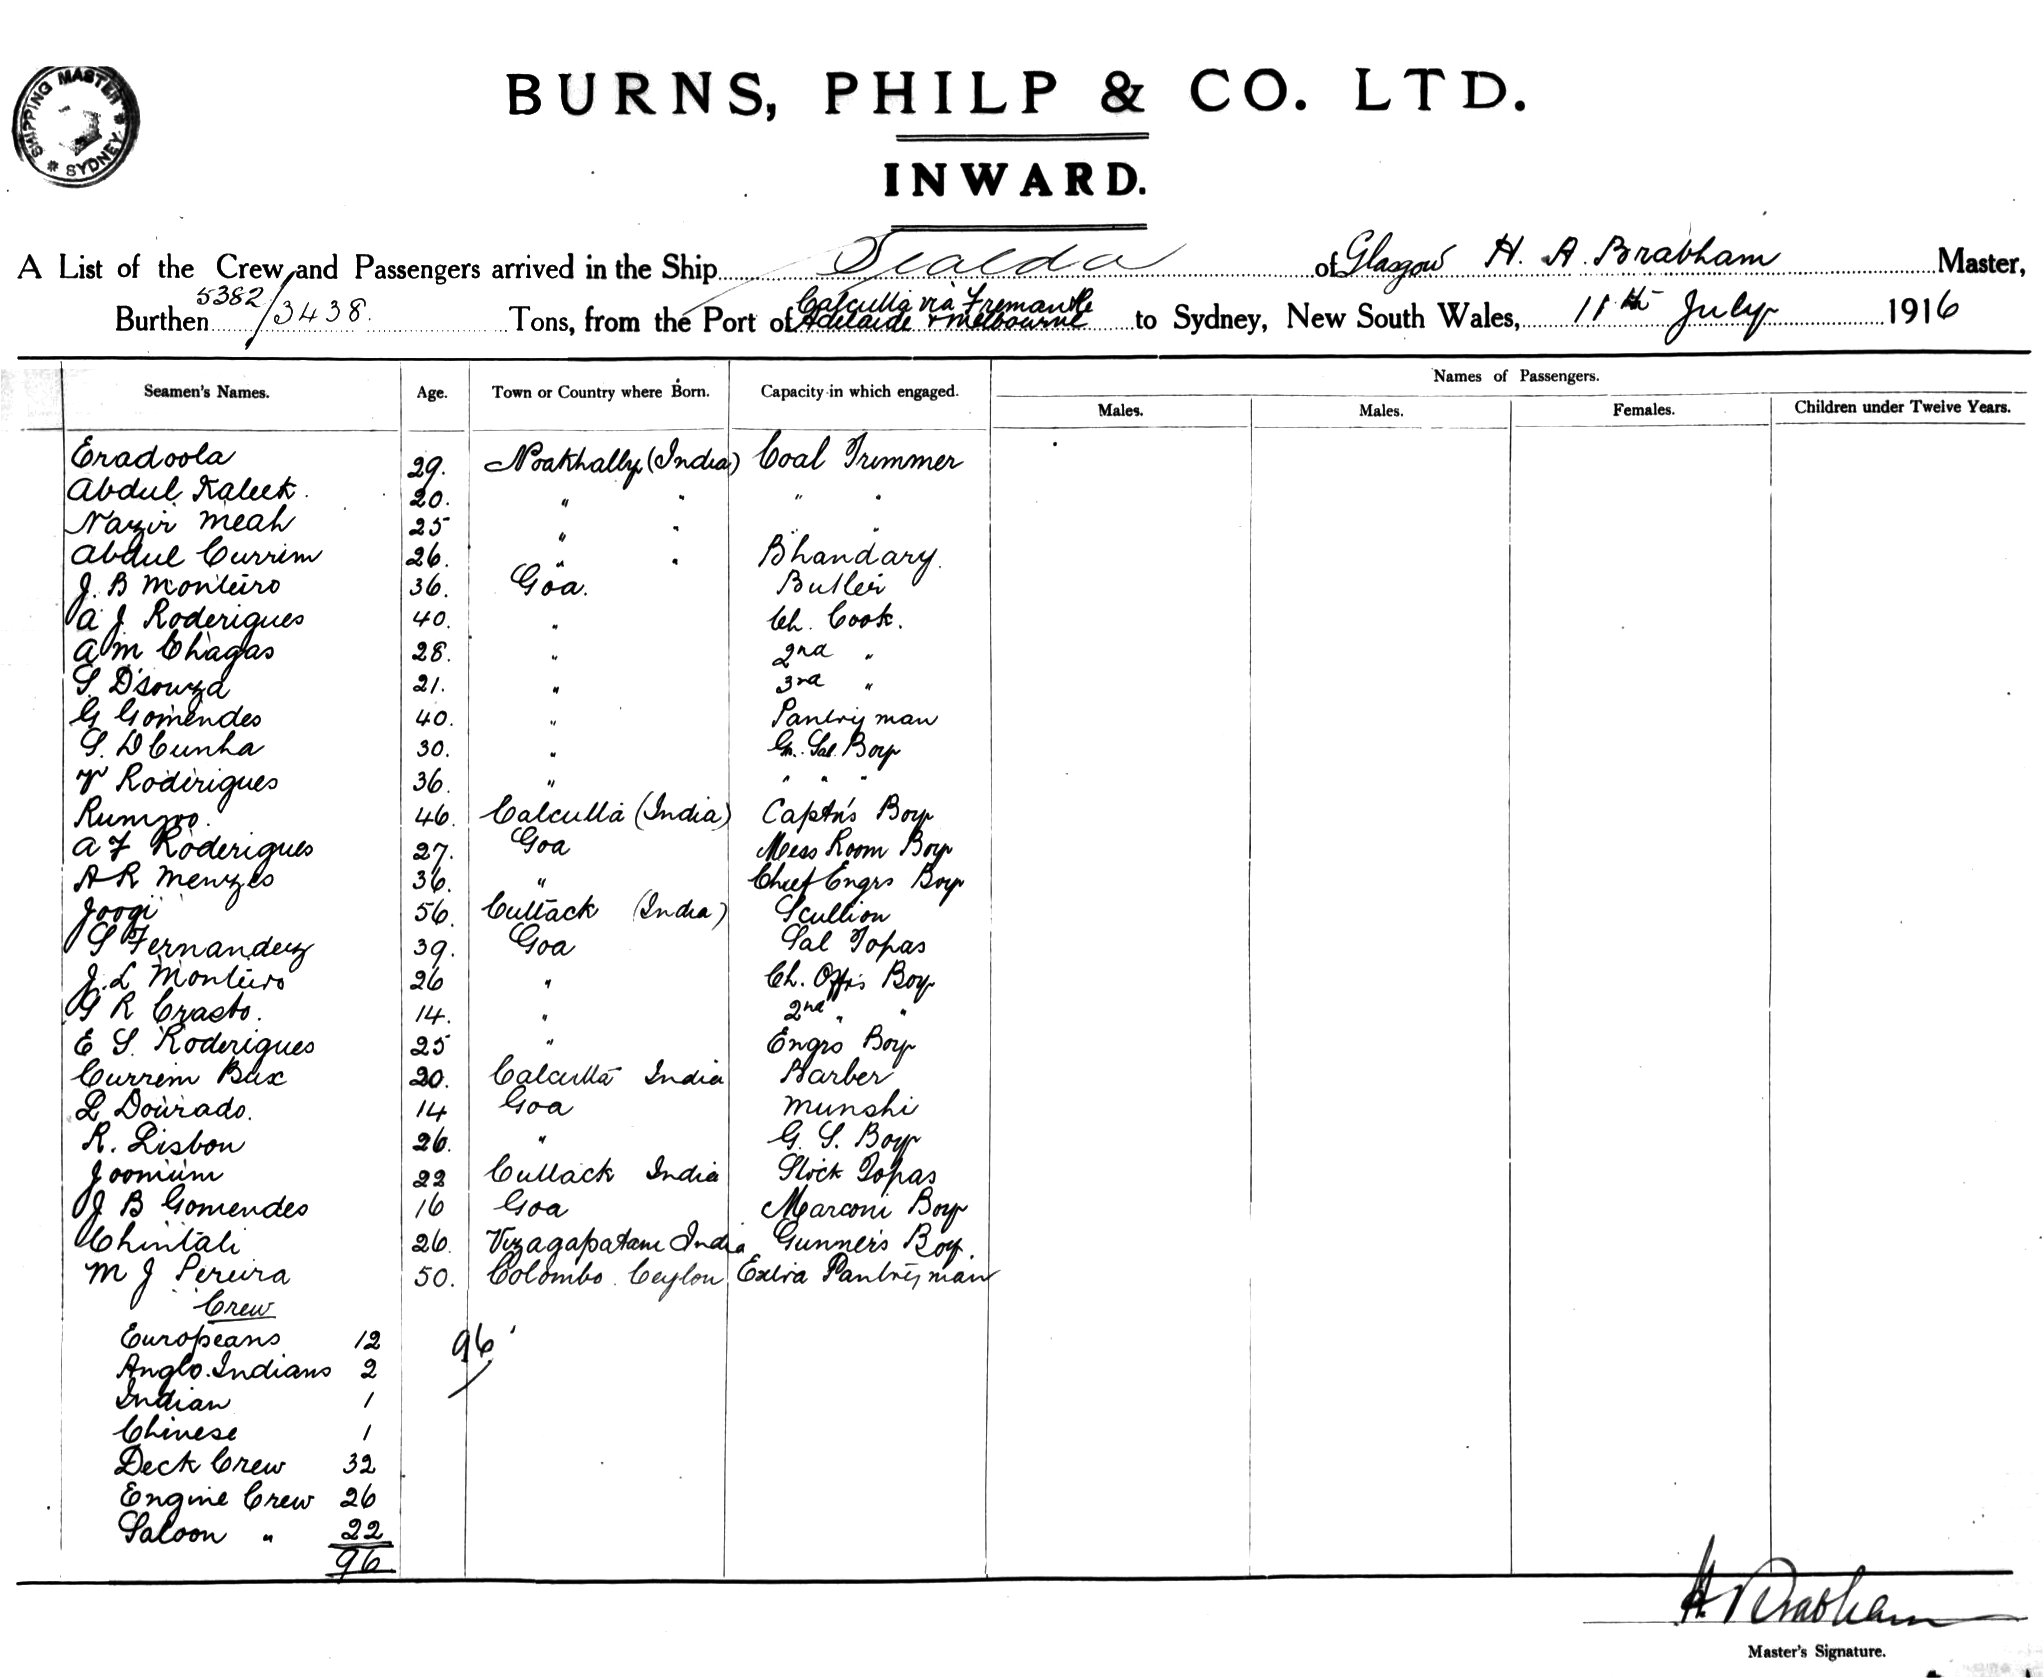 SHIPPING MASTER * SYDNEY *
BURNS, PHILP & CO. LTD.
INWARD.
A List of the Crew and Passengers arrived in the Ship Sealda of Glasgow H. A. Brabham Master,
Burthen 5382/3438. Tons, from the Port of Calcutta via Fremantle Adelaide & Melbourne to Sydney, New South Wales, 11th July 1916
Names of Passengers.
Seamen's Names. Age. Town or Country where Born. Capacity in which engaged. Males. Males. Females. Children under Twelve Years.
Eradoola 29. Noakhally (India) Coal Trimmer
Abdul Kaleek. 20. " " " "
Nazir Meah 25 " " "
Abdul Currim 26. " " Bhandary.
J. B Monteiro 36. Goa. Butler
A J Roderigues 40. " Ch. Cook.
A M Chagas 28. " 2nd "
S. D'Souza 21. " 3rd "
G Gomendes 40. " Pantry man
S. D Cunha 30. " Gn. Sal. Boy
V Roderigues 36. " " " "
Rumzoo. 46. Calcutta (India) Captn's Boy
A F Roderigues 27. Goa Mess Room Boy
A R Menzes 36. " Chief Engrs Boy
Joogi 56. Cuttack (India) Scullion
S Fernandez 39. Goa Sal Topas
J. L Monteiro 26 " Ch. Offrs Boy
G R Crasto. 14. " 2nd " "
E S. Roderigues 25 " Engrs Boy
Currim Bux 20. Calcutta India Barber
L Dourado. 14 Goa Munshi
R. Lisbon 26. " G. S. Boy
Joomum 22 Cuttack India Stock Topas
J B Gomendes 16 Goa Marconi Boy
Chintali 26. Vizagapatam India Gunner's Boy.
M J Pereira 50. Colombo Ceylon Extra Pantry man
Crew
Europeans 12 96
Anglo. Indians 2
Indian 1
Chinese 1
Deck Crew 32
Engine Crew 26
Saloon " 22
96
H Brabham
Master's Signature.